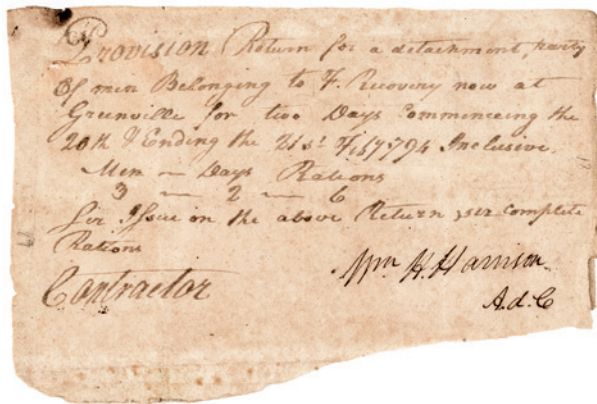 Provision Return for a detachment, party
Of men Belonging to F. Recovery now at
Greenville for two Days Commenceing the
20th & Ending the 21st 1794 Inclusive.
Men — Days Rations
3 — 2 — 6
Sir Issue on the above Return six complete
Rations
Contractor
Wm H. Harrison
A.d.C